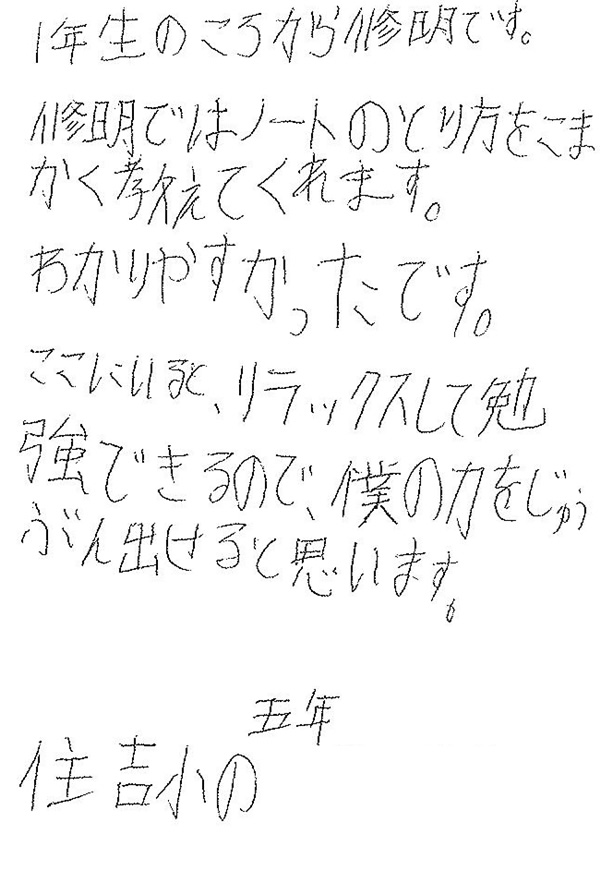 1年生のころから修明です。
修明ではノートのとり方をこま
かく教えてくれます。
わかりやすかったです。
ここにいると、リラックスして勉
強できるので、僕の力をじゅう
ぶん出せると思います。
五年
住吉小の